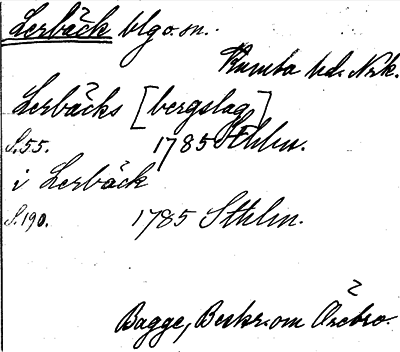 Lerbäck blg o. sn.
Kumla hd. Nrk.
Lerbäcks [bergslag]
S.55. 1785 Sthlm.
i Lerbäck
S.190. 1785 Sthlm.
2
Bagge, Beskr. om Örebro.